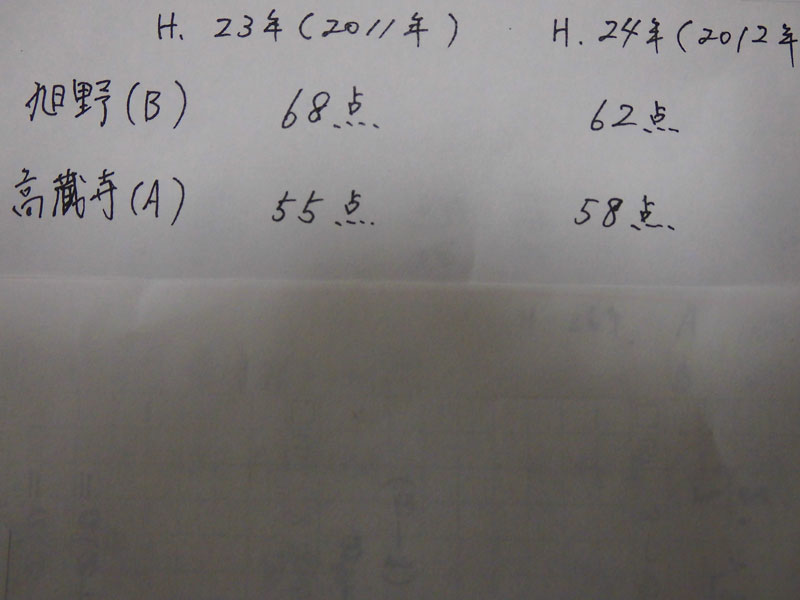 H. 23年(2011年) H. 24年(2012年
旭野(B) 68点 62点
高蔵寺(A) 55点 58点